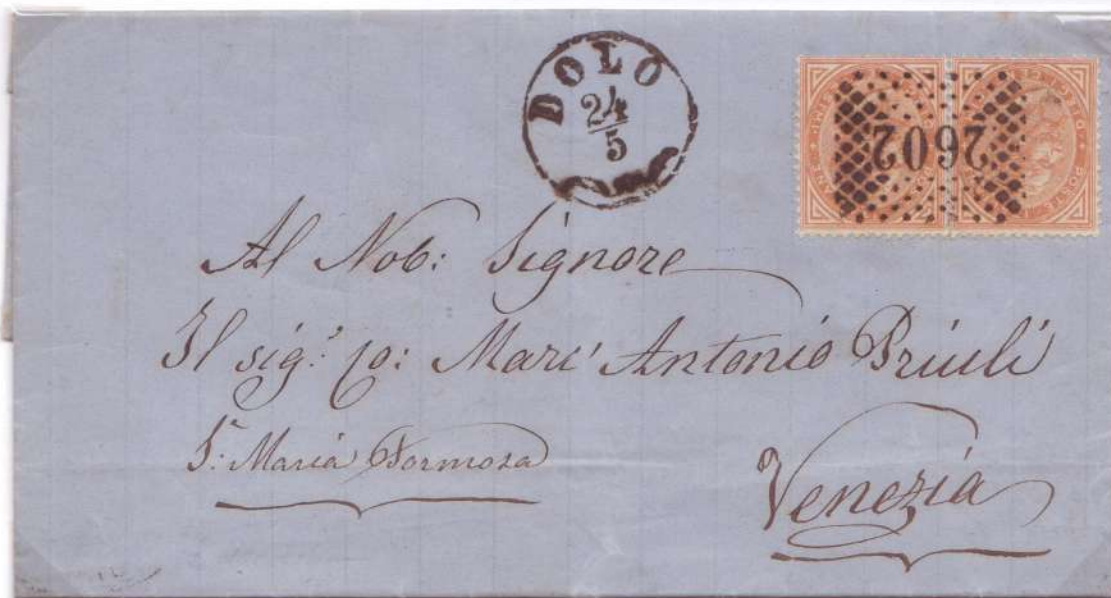 DOLO
24
5
2602
Al Nob: Signore
Il sig.r Co: Marc' Antonio Priuli
S. Maria Formosa
Venezia